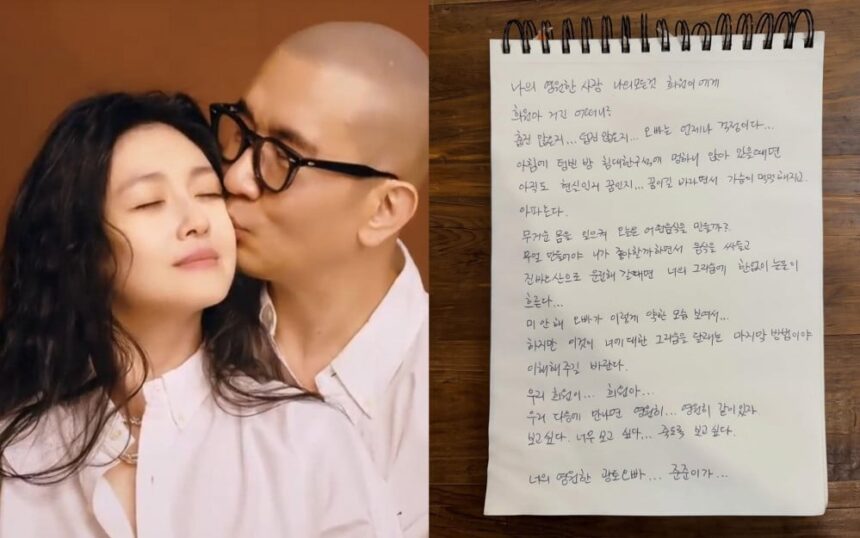 나의 영원한 사랑 나의모든것 희원이에게
희원아 거긴 어떠니?
춥진 않은지... 덥진 않은지... 오빠는 언제나 걱정이다...
아침에 텅빈 방 침대한구석에 멍하니 앉아 있을때면
아직도 현실인지 꿈인지... 꿈이길 바라면서 가슴이 먹먹해지고
아파온다.
무거운 몸을 일으켜 오늘은 어떤음식을 만들까?
무얼 만들어야 너가 좋아할까하면서 음식을 싸들고
진바오산으로 운전해 갈때면 너의 그리움에 한없이 눈물이
흐른다...
미안해 오빠가 이렇게 약한 모습 보여서...
하지만 이것이 너에대한 그리움을 달래는 마지막 방법이야
이해해주길 바란다.
우리 희원이... 희원아...
우리 다음에 만나면 영원히... 영원히 같이있자
보고싶다. 너무 보고 싶다... 죽도록 보고싶다.
너의 영원한 광토오빠... 준준이가...